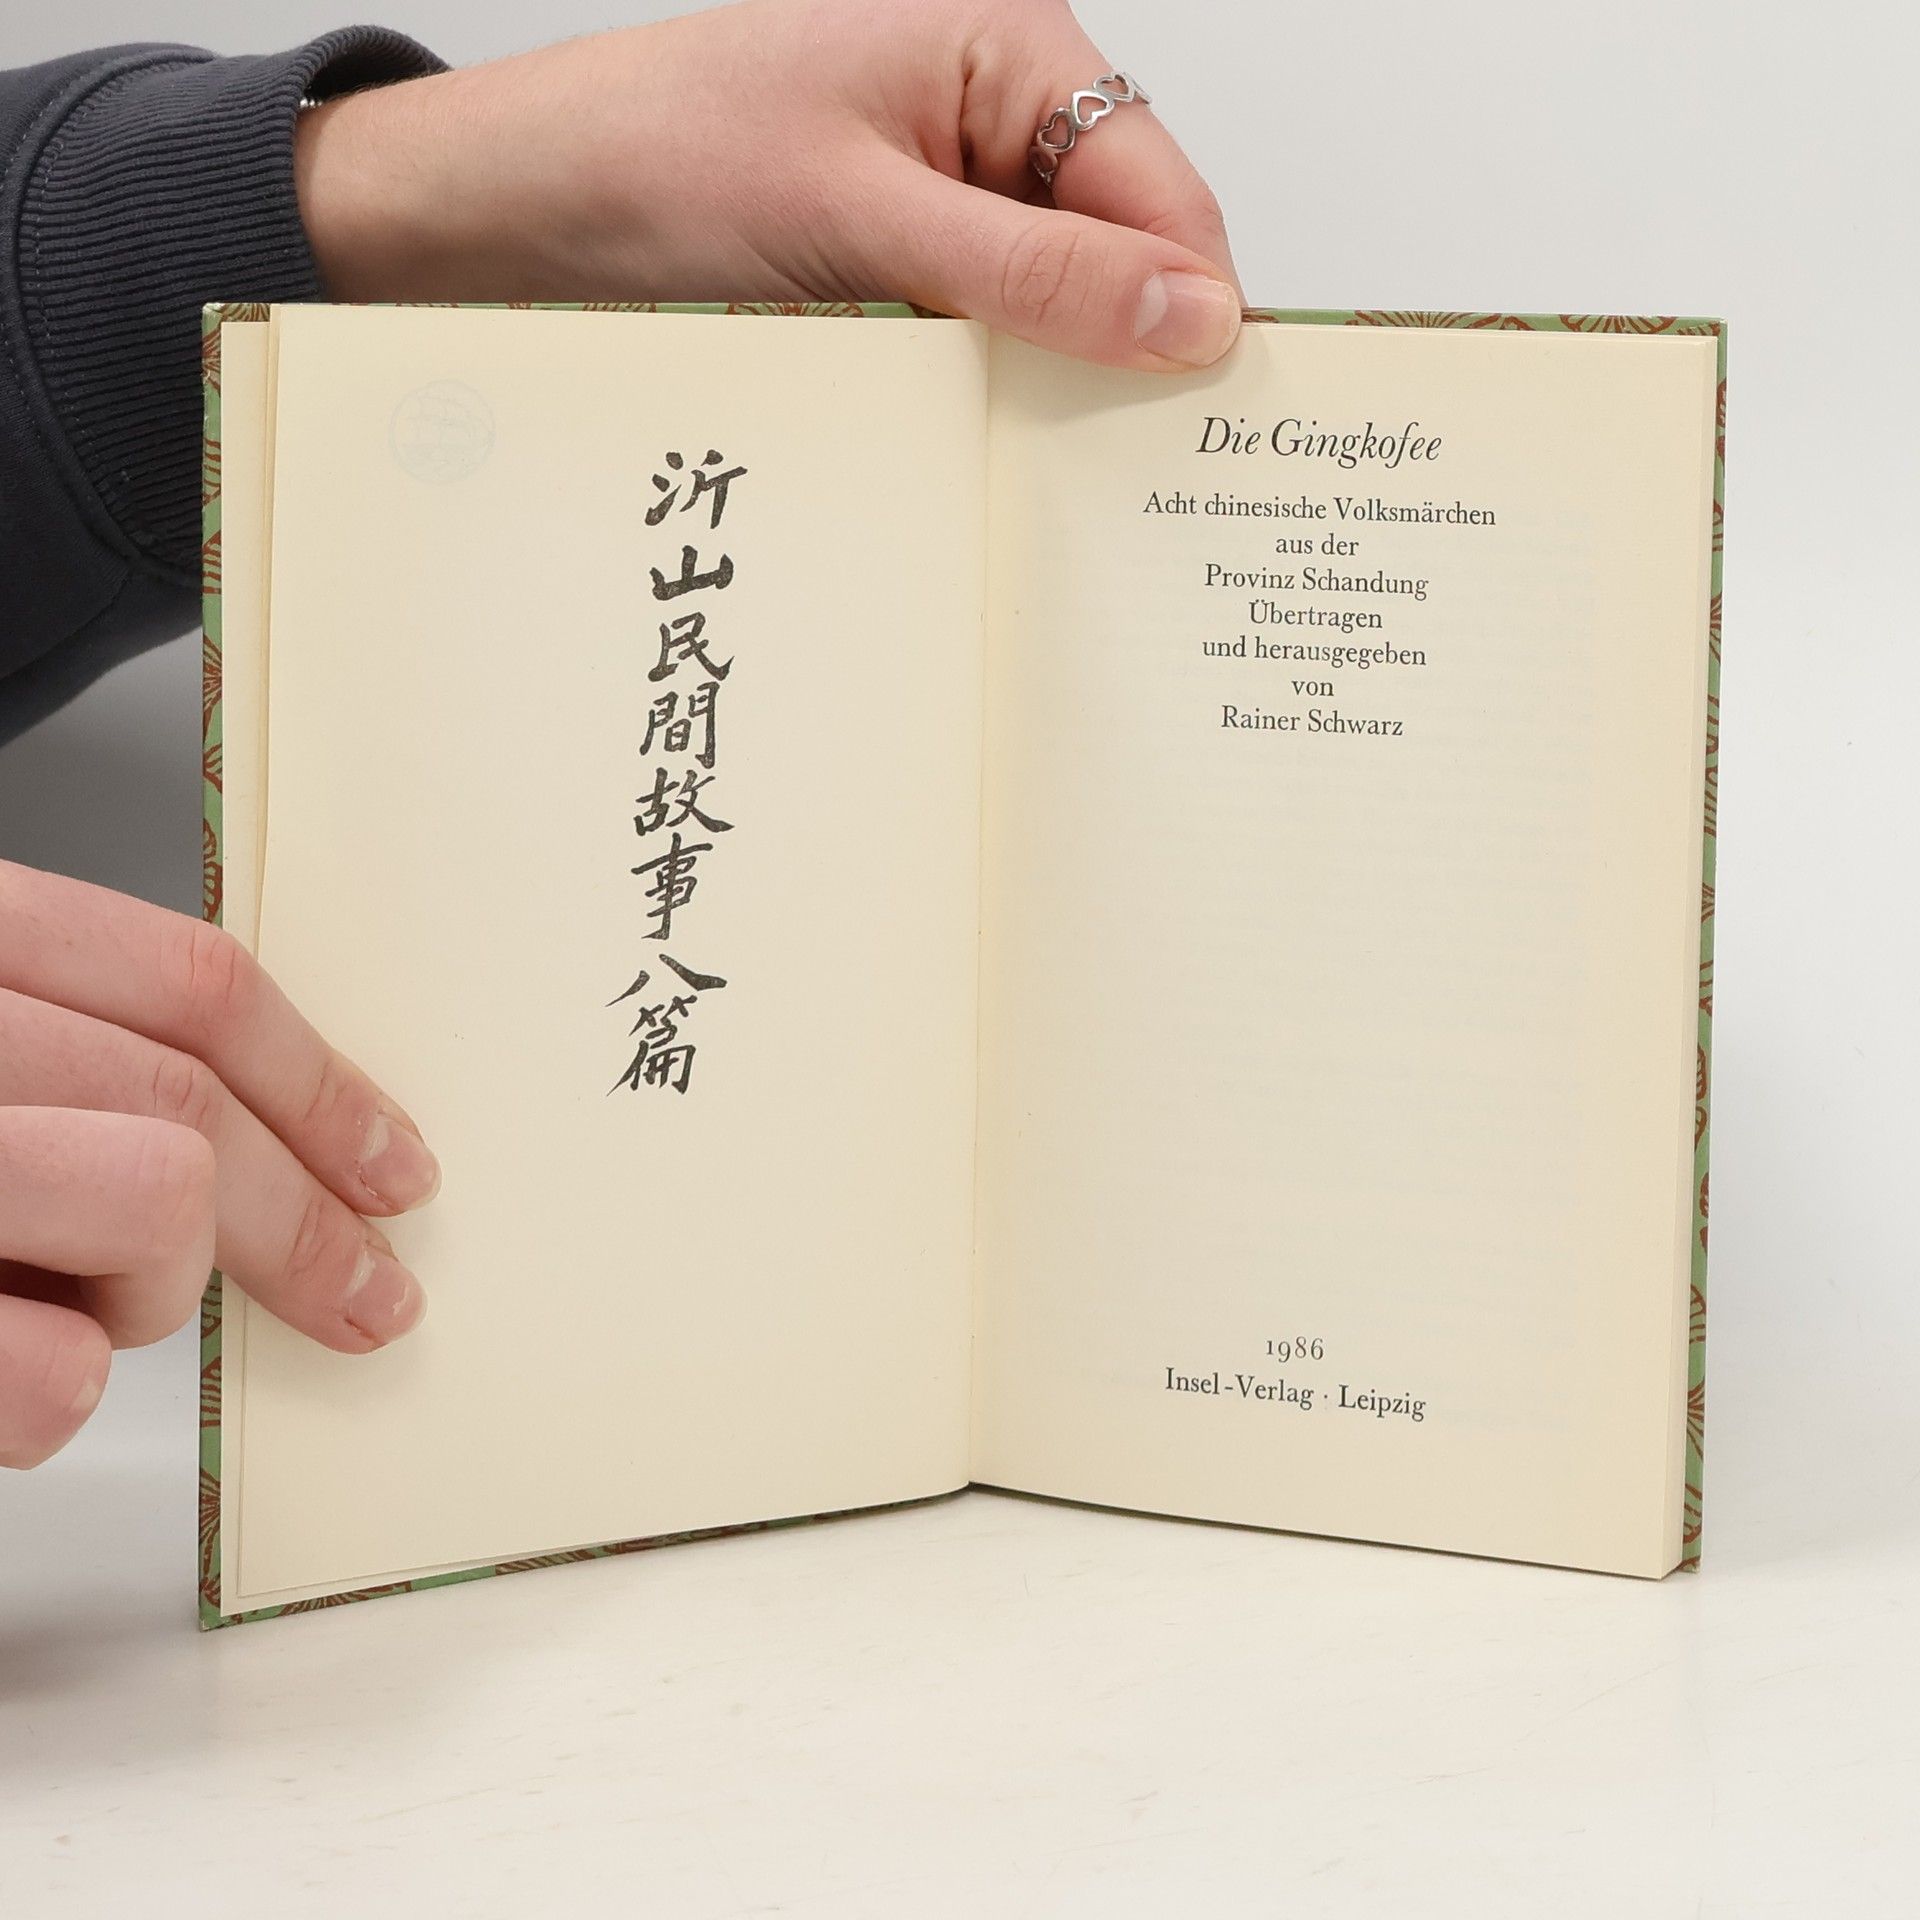 沂山民間故事八篇
Die Gingkofee
Acht chinesische Volksmärchen
aus der
Provinz Schandung
Übertragen
und herausgegeben
von
Rainer Schwarz
1986
Insel-Verlag · Leipzig